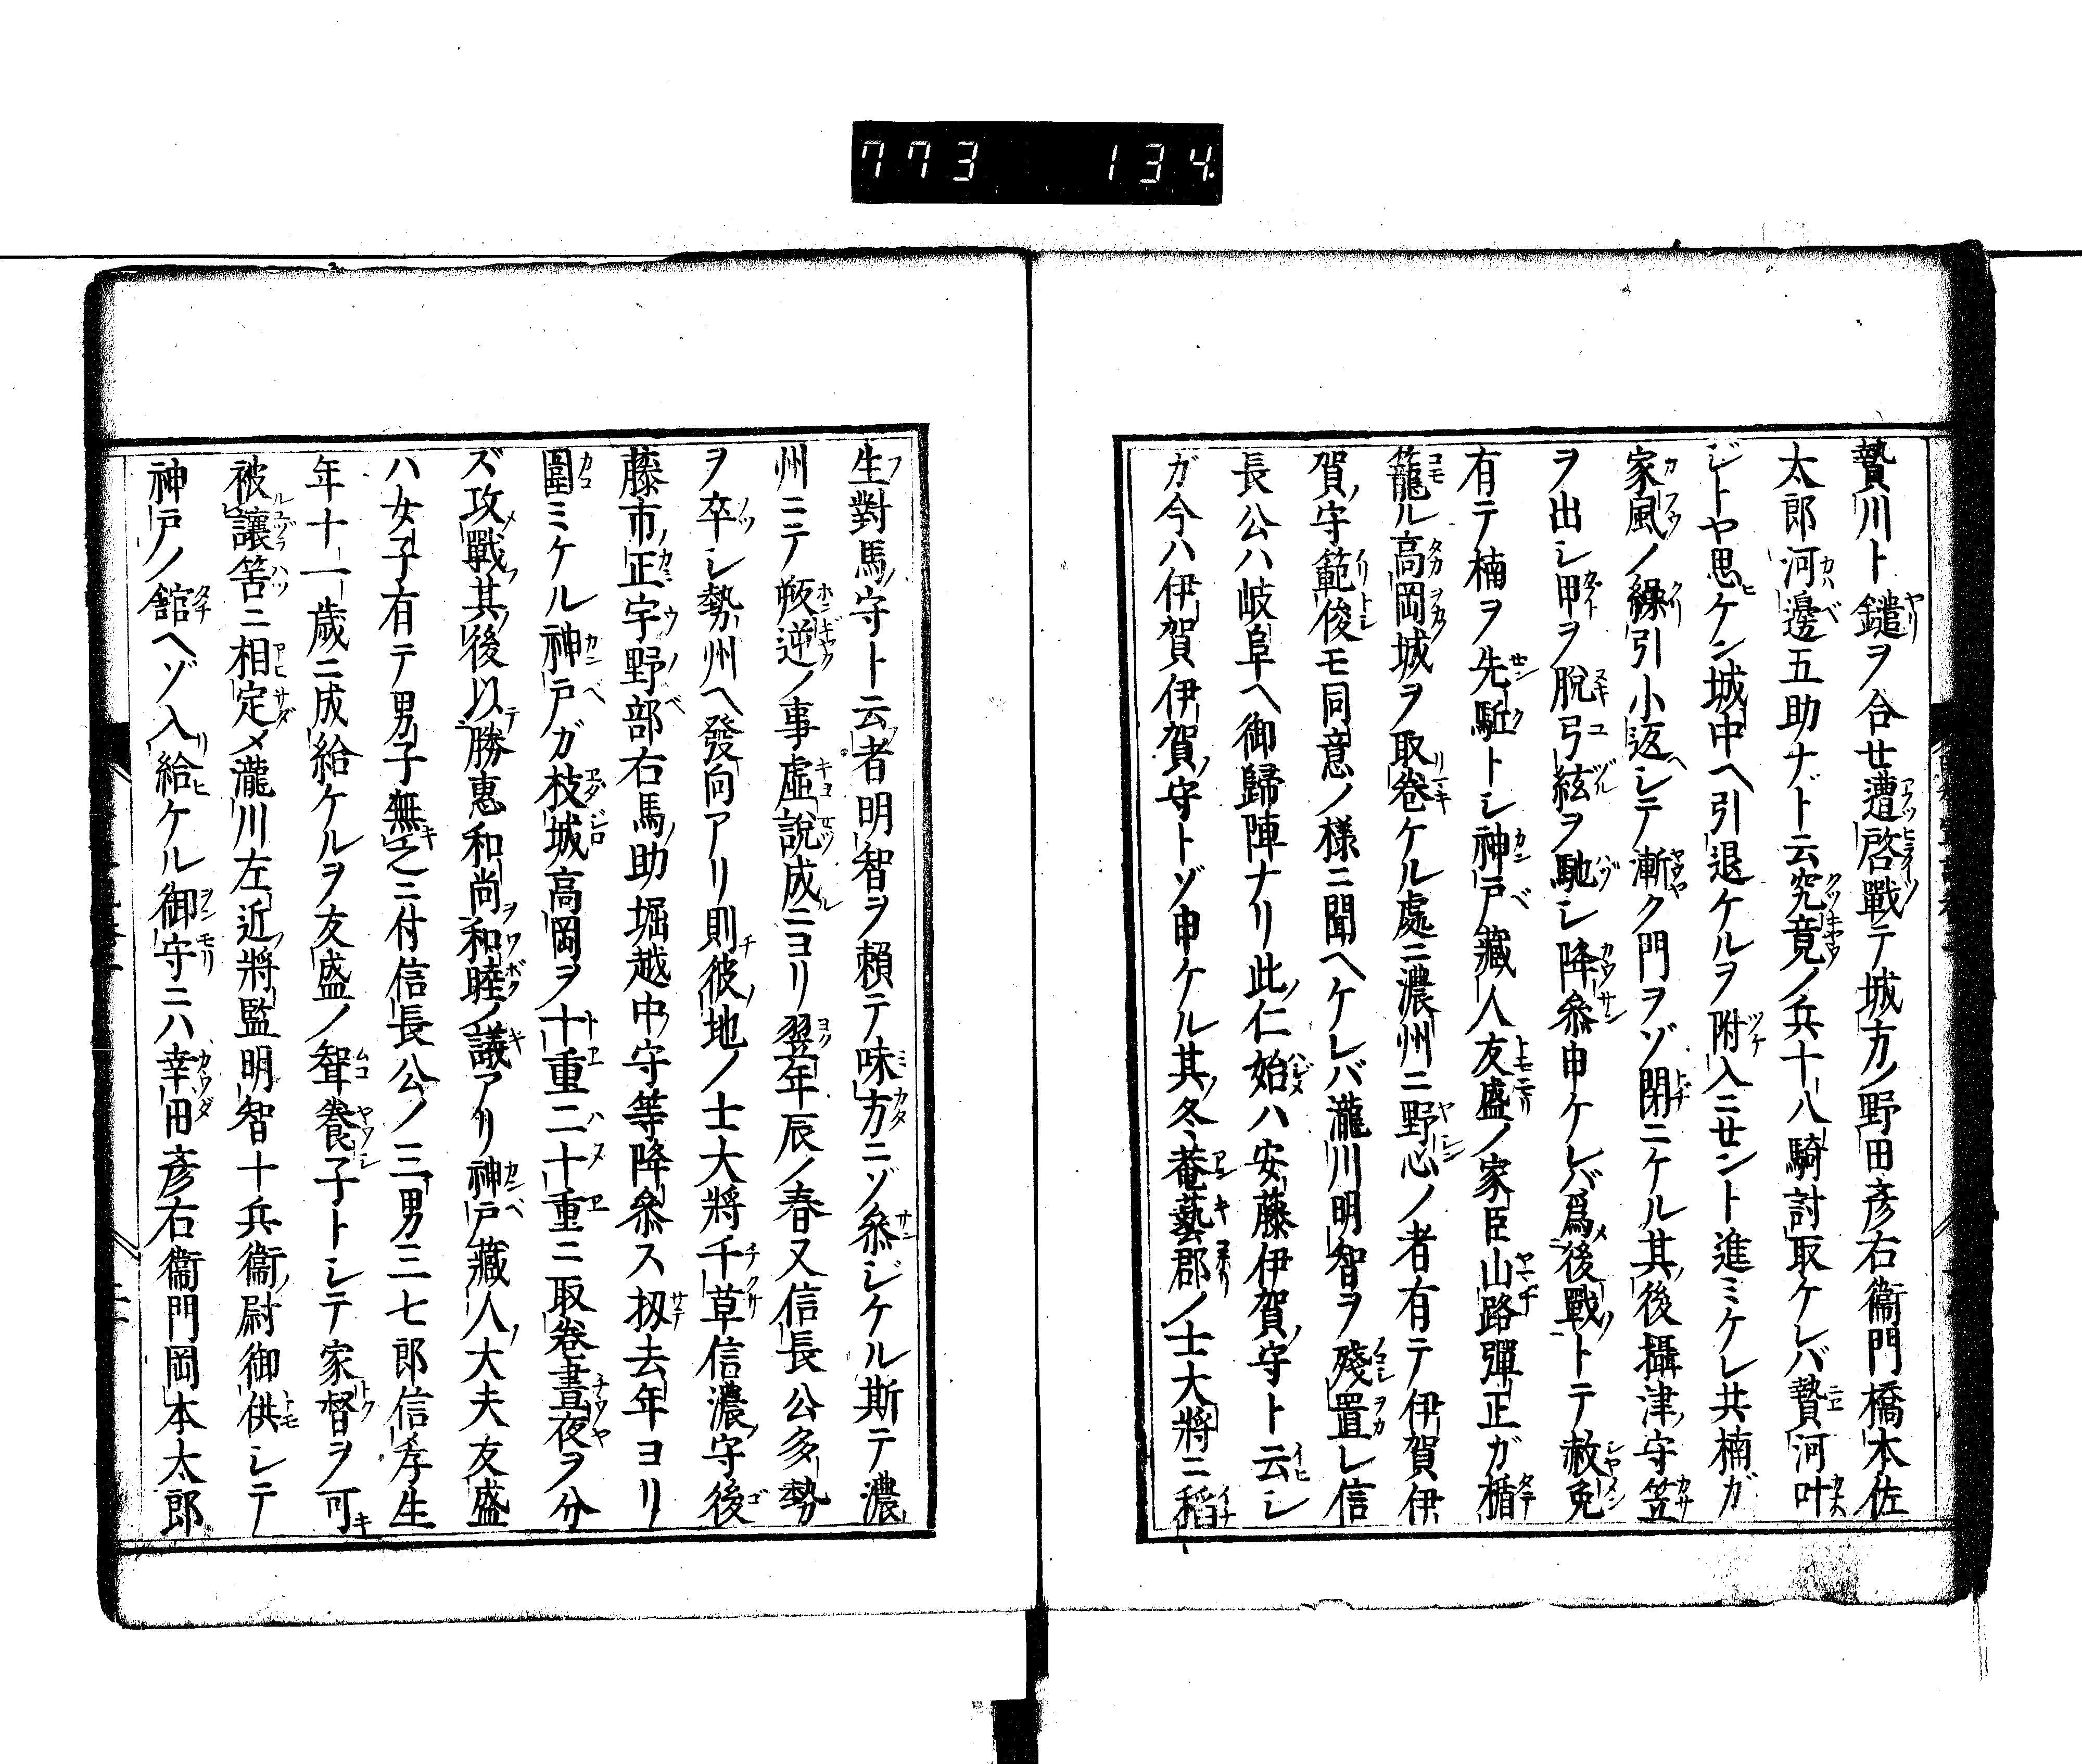 773 134.
贄川ト鑓ヲ合せ遭啓戰テ城方ノ野田彦右衞門橋本佐
太郎河邊五助ナド云究竟ノ兵十八騎討取ケレバ贄河叶
ジトヤ思ケン城中ヘ引退ケルヲ附入ニせント進ミケレ共楠ガ
家風ノ繰引小返シテ漸ク門ヲゾ閉ニケル其後攝津守笠
ヲ出シ甲ヲ脫弓絃ヲ馳シ降參申ケレバ爲後戰トテ赦免
有テ楠ヲ先駈トシ神戸藏人友盛ノ家臣山路彈正ガ楯
籠ル高岡城ヲ取卷ケル處ニ濃州ニ野心ノ者有テ伊賀伊
賀守範俊モ同意ノ樣ニ聞ヘケレバ瀧川明智ヲ殘置レ信
長公ハ岐阜ヘ御歸陣ナリ此仁始ハ安藤伊賀守ト云シ
ガ今ハ伊賀伊賀守トゾ申ケル其冬菴藝郡ノ士大將ニ稻
生對馬守ト云者明智ヲ賴テ味方ニゾ參ジケル斯テ濃
州ニテ叛逆ノ事虛說成ニヨリ翌年辰ノ春又信長公多勢
ヲ卒シ勢州ヘ發向アリ則彼地ノ士大將千草信濃守後
藤市正宇野部右馬助堀越中守等降參ス扨去年ヨリ
圍ミケル神戸ガ枝城高岡ヲ十重二十重ニ取卷晝夜ヲ分
ズ攻戰其後以勝惠和尙和睦ノ議アリ神戸藏人大夫友盛
ハ女子有テ男子無之ニ付信長公ノ三男三七郎信孝生
年十一歲ニ成給ケルヲ友盛ノ聟養子トシテ家督ヲ可
被讓筈ニ相定メ瀧川左近將監明智十兵衞尉御供シテ
神戸ノ舘ヘゾ入給ケル御守ニハ幸田彥右衞門岡本太郎